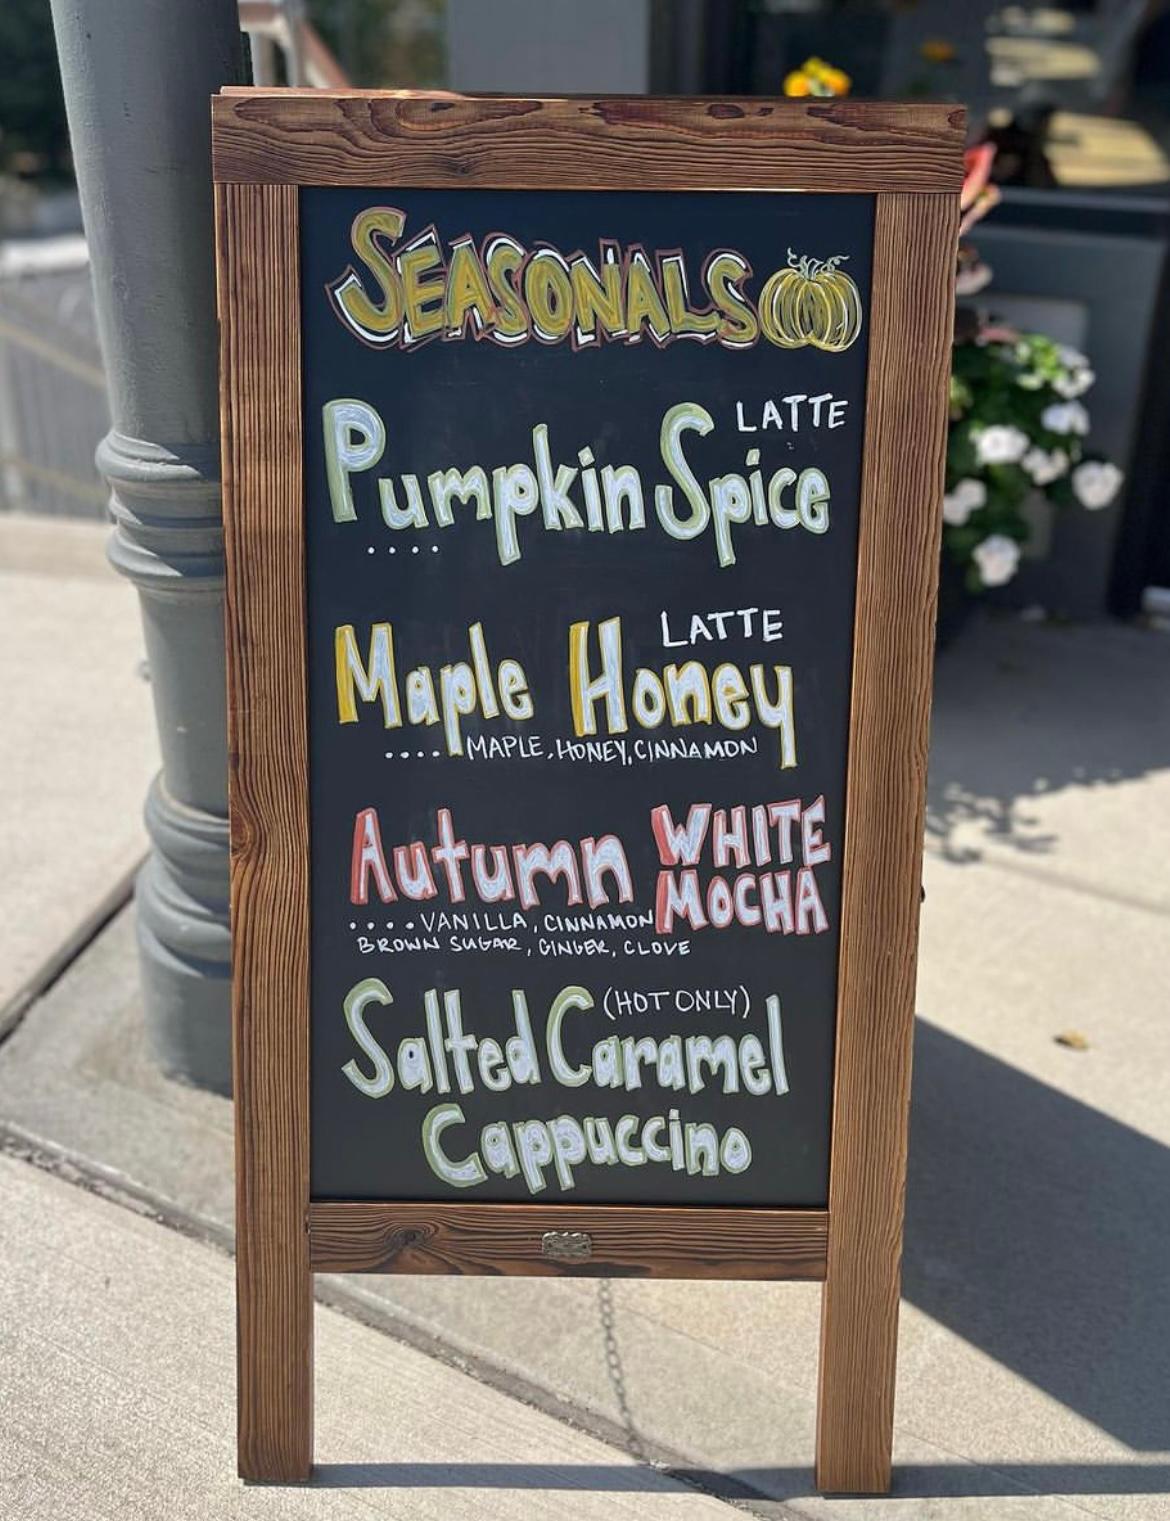 SEASONALS
LATTE
Pumpkin Spice
....
LATTE
Maple Honey
....MAPLE, HONEY, CINNAMON
Autumn WHITE MOCHA
....VANILLA, CINNAMON
BROWN SUGAR, GINGER, CLOVE
(HOT ONLY)
Salted Caramel
Cappuccino